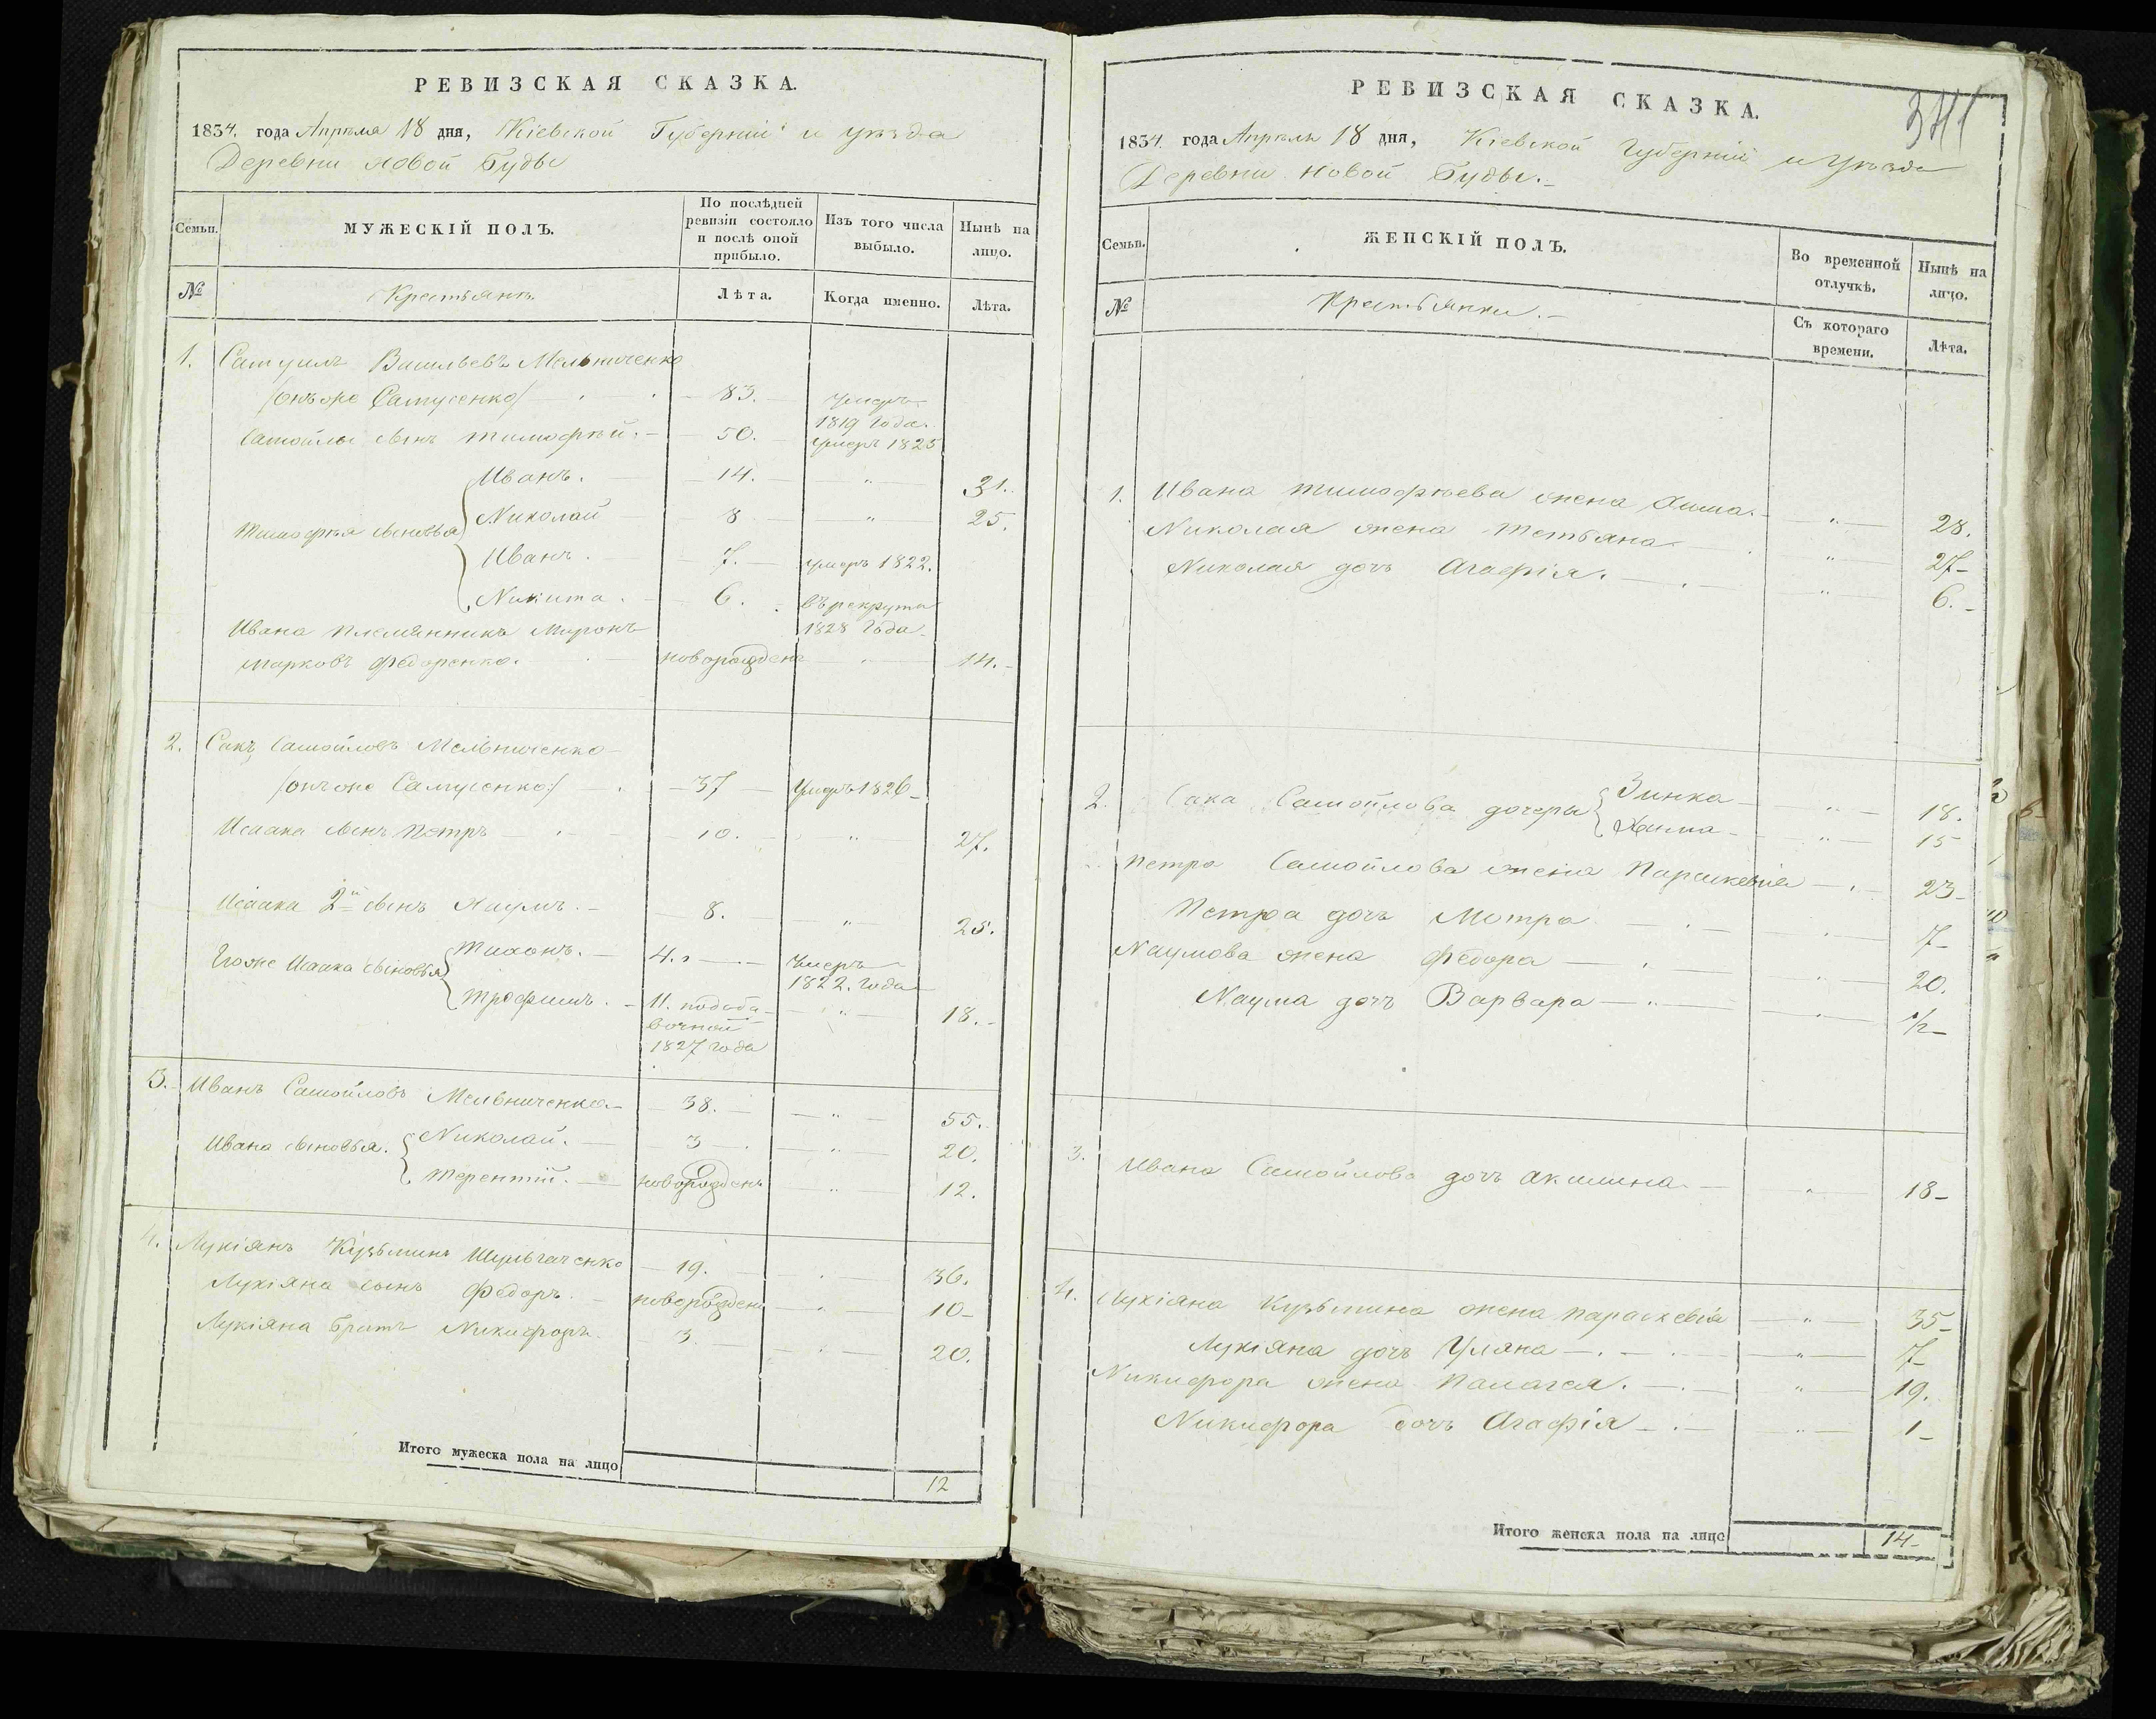 РЕВИЗСКАЯ СКАЗКА.
1834. года Апреля 18 дня, Кіевской Губерніи и уезда
Деревни Новой Буды
Семьи.
МУЖЕСКІЙ ПОЛЪ.
По послѣдней ревизіи состояло и послѣ оной прибыло.
Изъ того числа выбыло.
Нынѣ на лицо.
№
Крестьянъ.
Лѣта.
Когда именно.
Лѣта.
1. Самуилъ Васильевъ Мельниченко
/онъ же Самусенко/ 83. умеръ 1819 года.
Самойлы сынъ Тимофѣй. 50. умеръ 1825
Тимофѣя сыновья
Иванъ. 14. " 31.
Николай 8 " 25.
Иванъ. 7. умеръ 1822.
Никита. 6. въ рекруты 1828 года
Ивана племянникъ Миронъ
Марковъ Федоренко. новорожденъ " 14.
2. Сакъ Самойловъ Мельниченко
/онъ же Самусенко/ 37 умеръ 1826
Исаака сынъ Петръ 10. " 27.
Исаака 2й сынъ Наумъ. 8. " 25.
Егоже Исаака сыновья
Тихонъ. 4. умеръ 1822. года
Трофимъ. 11. по добавочной 1827 года " 18.
3. Иванъ Самойловъ Мельниченко 38. " 55.
Ивана сыновья.
Николай. 3 " 20.
Терентій. новорожденъ " 12.
4. Лукіянъ Кузьминъ Шульгаченко 19. " 36.
Лукіяна сынъ Федоръ. новорожденъ " 10
Лукіяна братъ Никифоръ. 3. " 20.
Итого мужеска пола на лицо 12
РЕВИЗСКАЯ СКАЗКА.
341
1834. года Апрѣля 18 дня, Кіевской Губерніи и Уезда
Деревни Новой Буды.
Семьи.
ЖЕНСКІЙ ПОЛЪ.
Во временной отлучкѣ.
Нынѣ на лицо.
№
Крестьянки.
Съ котораго времени.
Лѣта.
1. Ивана Тимофѣева жена " 28.
Николая жена Тетьяна " 27
Николая дочь Агафія. " 6.
2. Сака Самойлова дочери
Зинка " 18.
Хима " 15
Петра Самойлова жена Параскевія 23
Петра дочь Мотря 7
Наумова жена Федора " 20.
Наума дочь Варвара " 1/2
3. Ивана Самойлова дочь Акилина " 18
4. Лукіяна Кузьмина жена Параскевія " 35
Лукіяна дочь Уляна " 7
Никифора жена Палагея. " 19.
Никифора дочь Агафія " 1
Итого женска пола на лицо 14